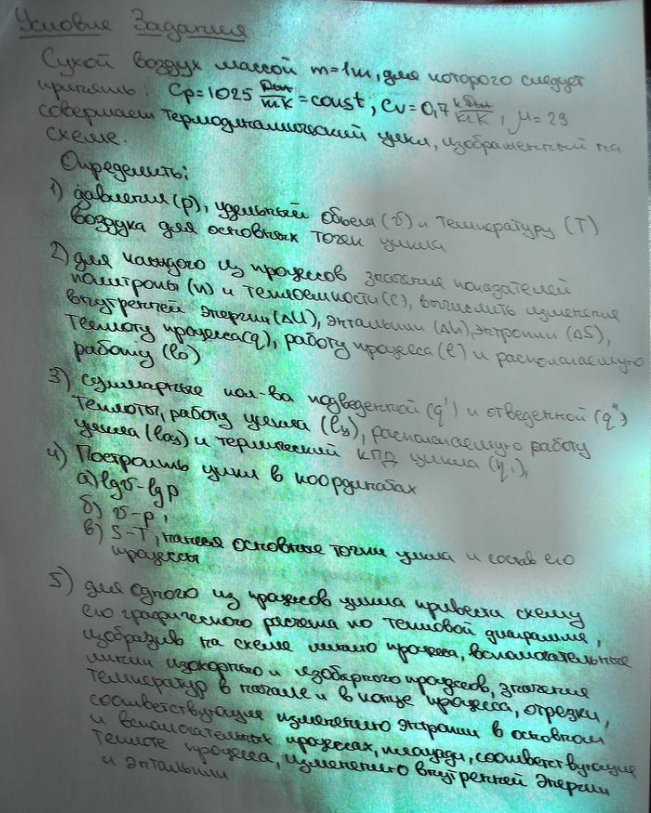 Условие Задания
Сухой воздух массой m=1кг, для которого следует
принять: Cp=1025 Дж/кгК = const, Cv=0,7 кДж/кгК, μ=29
совершает термодинамический цикл, изображенный на
схеме.
Определить:
1) давления (p), удельный объем (υ) и температуру (T)
воздуха для основных точек цикла
2) для каждого из процессов значения показателей
политропы (n) и теплоемкости (c), вычислить изменения
внутренней энергии (ΔU), энтальпии (Δh), энтропии (ΔS),
теплоту процесса(q), работу процесса (l) и располагаемую
работу (l₀)
3) суммарные кол-ва подведенной (q') и отведенной (q")
теплоты, работу цикла (lц), располагаемую работу
цикла (l₀ц) и термический КПД цикла (ηt),
4) Построить цикл в координатах
а) lgυ-lgP
б) υ-p,
в) S-T, нанеся основные точки цикла и состав его
процессы
5) для одного из процессов цикла привести схему
его графического расчета по тепловой диаграмме,
изобразив на схеме линию процесса, вспомогательные
линии изохорного и изобарного процессов, значения
температур в начале и в конце процесса, отрезки,
соответствующие изменению энтропии в основном
и вспомогательных процессах, площади, соответствующие
теплоте процесса, изменению внутренней энергии
и энтальпии